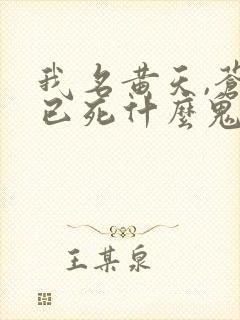 我名黄天,蒼
已死什麼鬼
王某泉